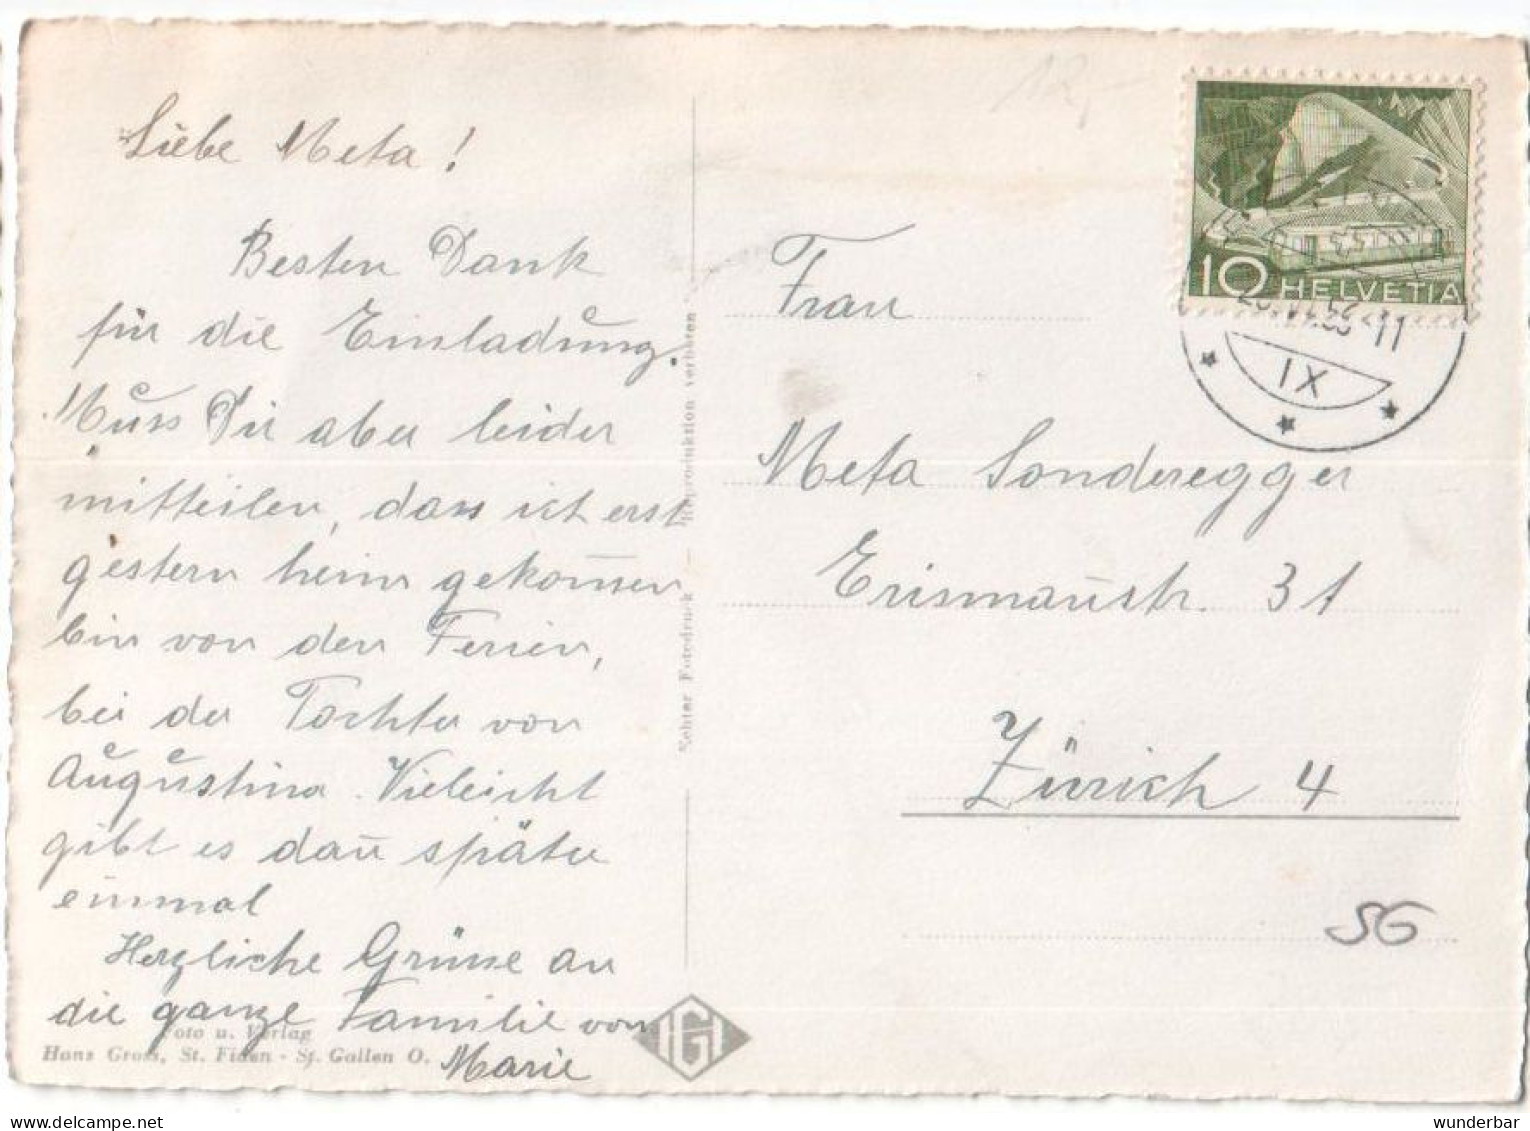 Liebe Meta!
Besten Dank
für die Einladung.
Muss Dir aber leider
mitteilen, dass ich erst
gestern heim gekom̄en
bin von den Ferien,
bei der Tochter von
Augustina. Vieleicht
gibt es dan̄ später
einmal
Herzliche Grüsse an
die ganze Familie von
Marie
Foto u. Verlag
Hans Gross, St. Fiden - St. Gallen O.
Echter Fotodruck — Reproduktion verboten
IGI
12,-
10 HELVETIA
11
IX
Frau
Meta Sonderegger
Erisman̄str. 31
Zürich 4
SG
wunderbar
delcampe.net